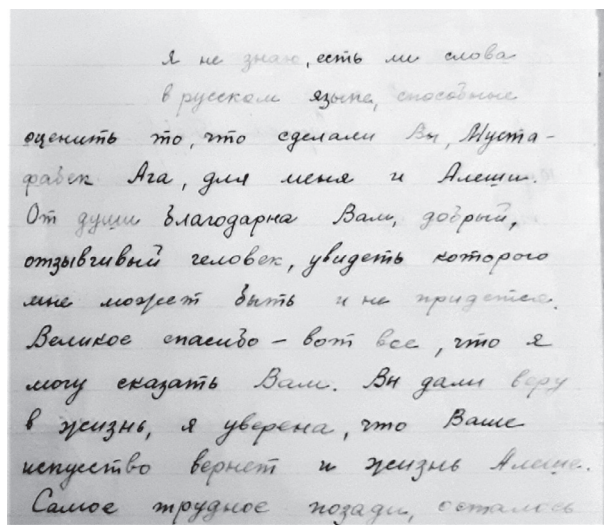 я не знаю, есть ли слова
в русском языке, способные
оценить то, что сделали Вы, Муста-
фабек Ага, для меня и Алеши.
От души благодарна Вам, добрый,
отзывчивый человек, увидеть которого
мне может быть и не придется.
Великое спасибо – вот все, что я
могу сказать Вам. Вы дали веру
в жизнь, я уверена, что Ваше
искуство вернет и жизнь Алеше.
Самое трудное позади, осталось